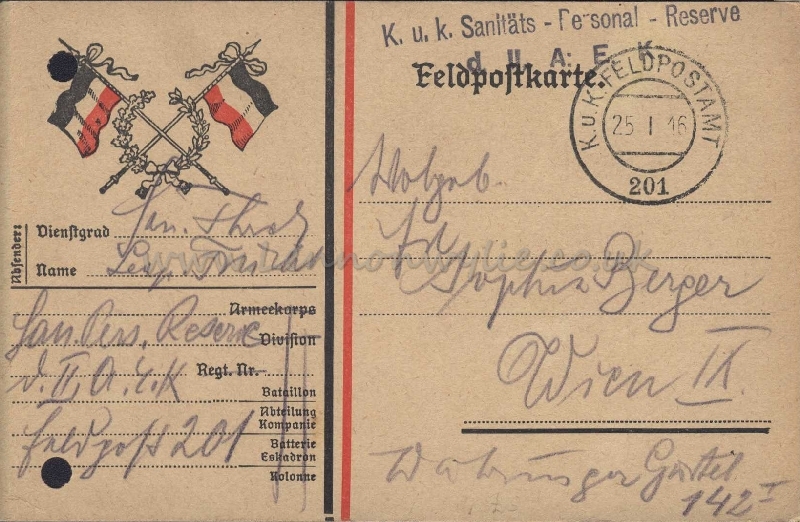 K. u. k. Sanitäts - Personal - Reserve
d. II. A. E. K.
Feldpostkarte.
K.u.K. FELDPOSTAMT
25 I 16
201
Absender:
Dienstgrad
Name
Armeekorps
San. Pers. Reserve
Division
d. II. A. E. K
Regt. Nr.
Bataillon
Abteilung
Kompanie
Feldpost 201
Batterie
Eskadron
Kolonne
Wolgeb.
Sophie Berger
Wien IX
Gürtel
142